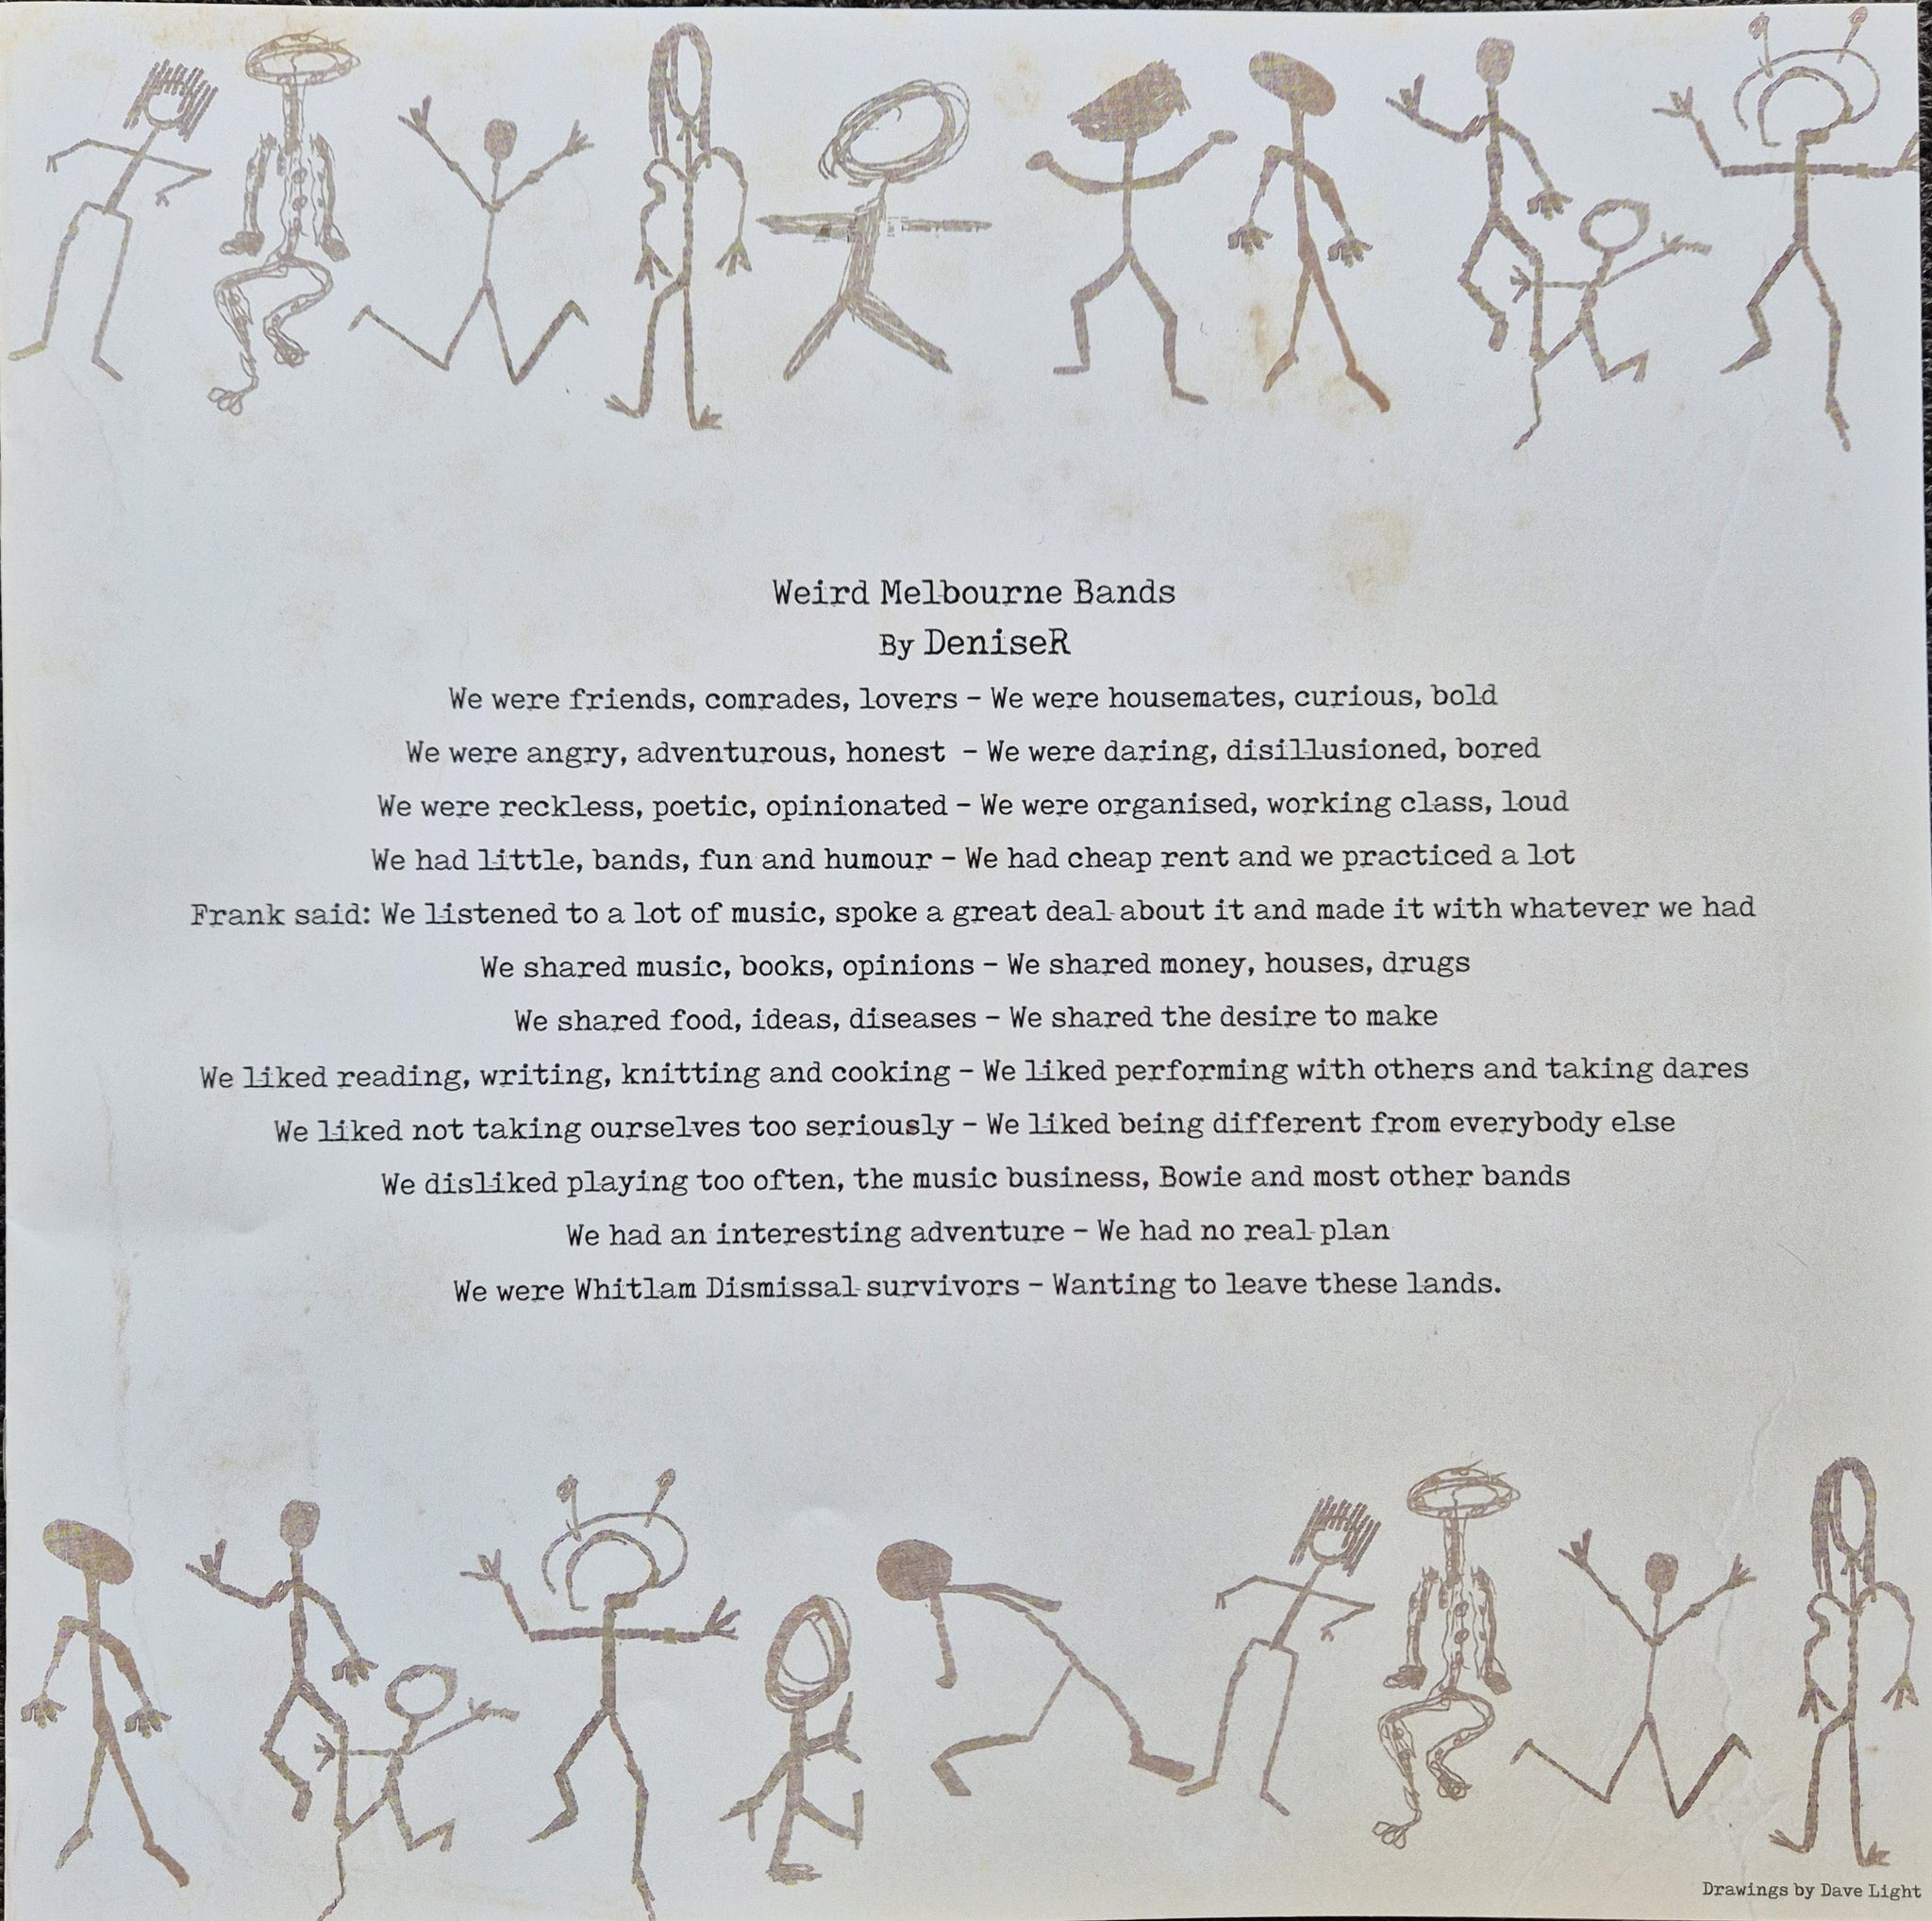 Weird Melbourne Bands
By DeniseR
We were friends, comrades, lovers – We were housemates, curious, bold
We were angry, adventurous, honest – We were daring, disillusioned, bored
We were reckless, poetic, opinionated – We were organised, working class, loud
We had little, bands, fun and humour – We had cheap rent and we practiced a lot
Frank said: We listened to a lot of music, spoke a great deal about it and made it with whatever we had
We shared music, books, opinions – We shared money, houses, drugs
We shared food, ideas, diseases – We shared the desire to make
We liked reading, writing, knitting and cooking – We liked performing with others and taking dares
We liked not taking ourselves too seriously – We liked being different from everybody else
We disliked playing too often, the music business, Bowie and most other bands
We had an interesting adventure – We had no real plan
We were Whitlam Dismissal survivors – Wanting to leave these lands.
Drawings by Dave Light